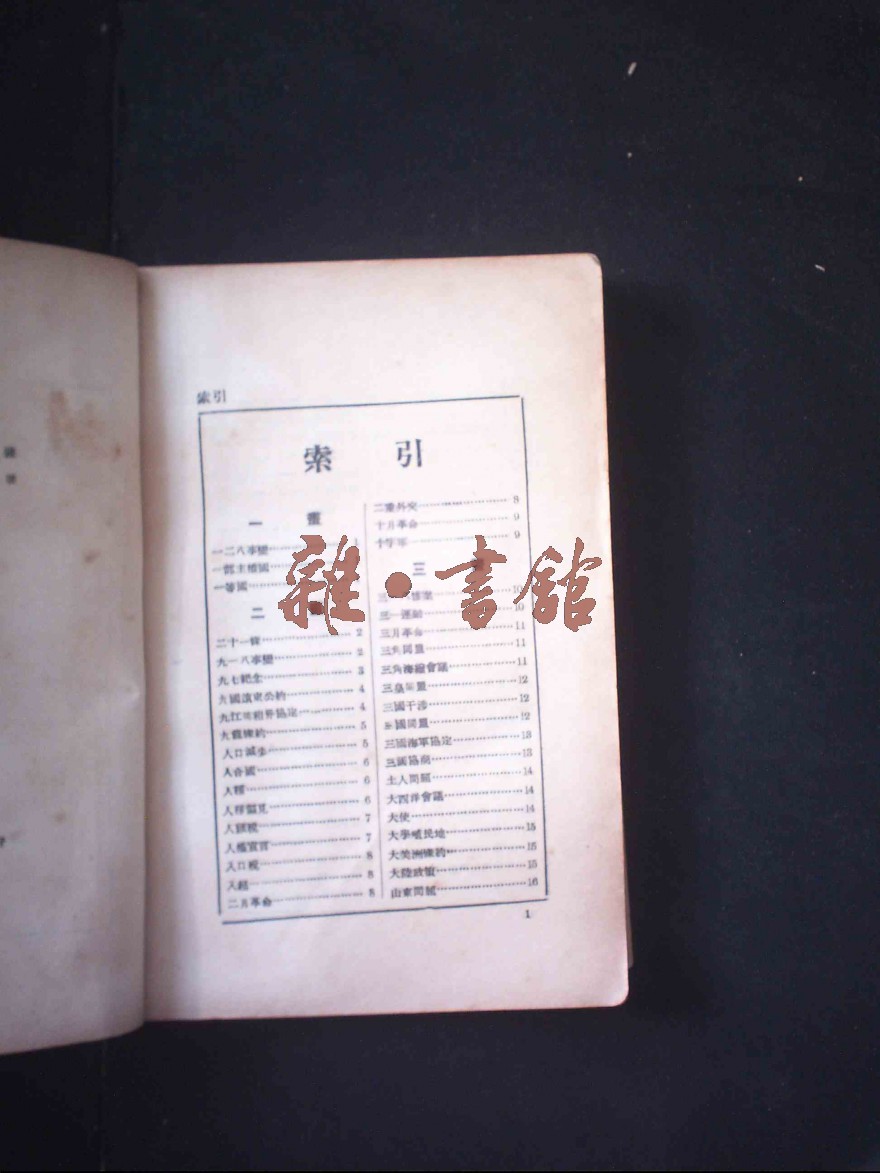 索引
索 引
一 畫
一二八事變 1
一等國
二
二十一條 2
九一八事變 2
九七紀念 3
九國遠東公約 4
九江英租界協定 4
九龍條約 5
人口減少 5
人合國 6
人種 6
人種偏見 6
人頭稅 7
人權宣言 7
入口稅 8
入超 8
二月革命 8
二重外交 8
十月革命 9
十字軍 9
三
10
三一運動 10
三月革命 11
三角同盟 11
三角海線會議 11
三皇同盟 12
三國干涉 12
三國同盟 12
三國海軍協定 13
三國協商 13
土人問題 14
大西洋會議 14
大使 14
大學殖民地 15
大美洲條約 15
大陸政策 15
山東問題 16
1
雜·書館